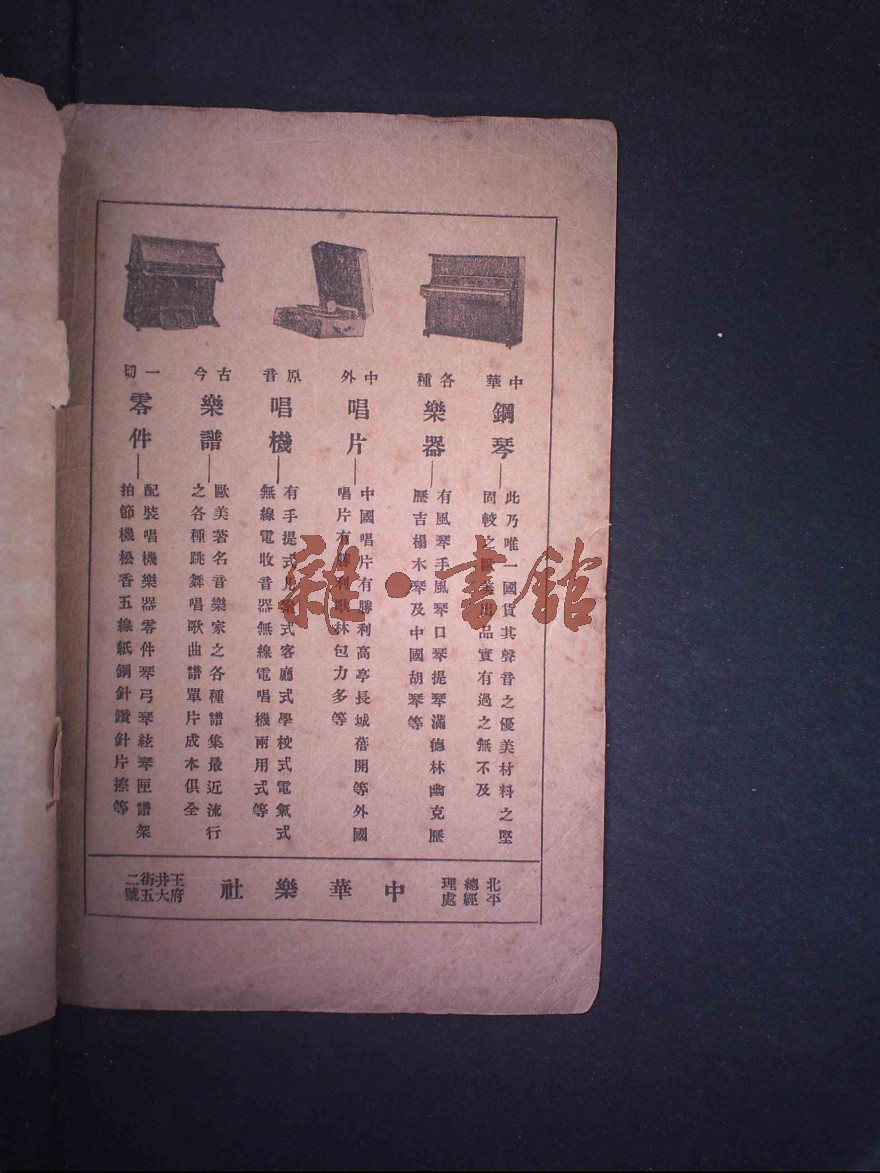 中華
鋼琴
此乃唯一國貨其聲音之優美材料之堅
固較之歐美出品實有過之無不及
各種
樂器
有風琴手風琴口琴提琴滿德林曲克歷
歷吉榻木琴及中國胡琴等
中外
唱片
中國唱片有勝利高亭長城蓓開等外國
唱片有勝利歌林包力多等
原音
唱機
有手提式 式客廳式學校式電氣式
無線電收音器無線電唱機兩用式等
古今
樂譜
歐美著名音樂家之各種譜集最近流行
之各種跳舞唱歌曲譜單片成本俱全
一切
零件
配裝唱機樂器零件琴弓琴絃琴匣譜架
拍節機松香五線紙鋼針鑽針片擦等
北平
總經
理處
中華樂社
王府
井大
街五
二號
雜·書館